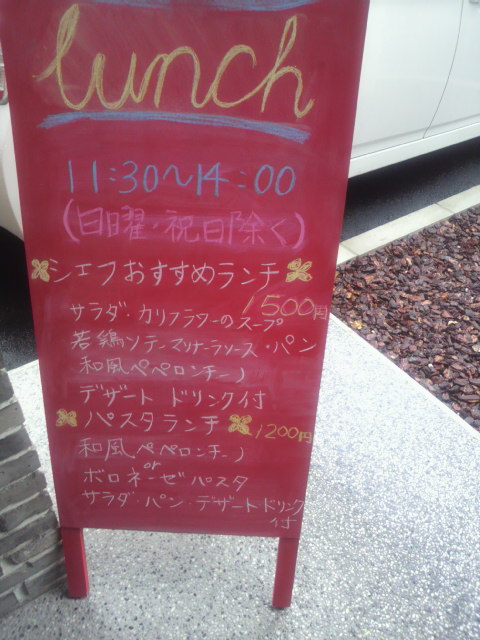 lunch
11:30～14:00
(日曜・祝日除く)
シェフおすすめランチ
1500円
サラダ・カリフラワーのスープ
若鶏ソテーマリナーラソース・パン
和風ペペロンチーノ
デザート ドリンク付
パスタランチ 1200円
和風ペペロンチーノ
or
ボロネーゼパスタ
サラダ・パン・デザートドリンク
付